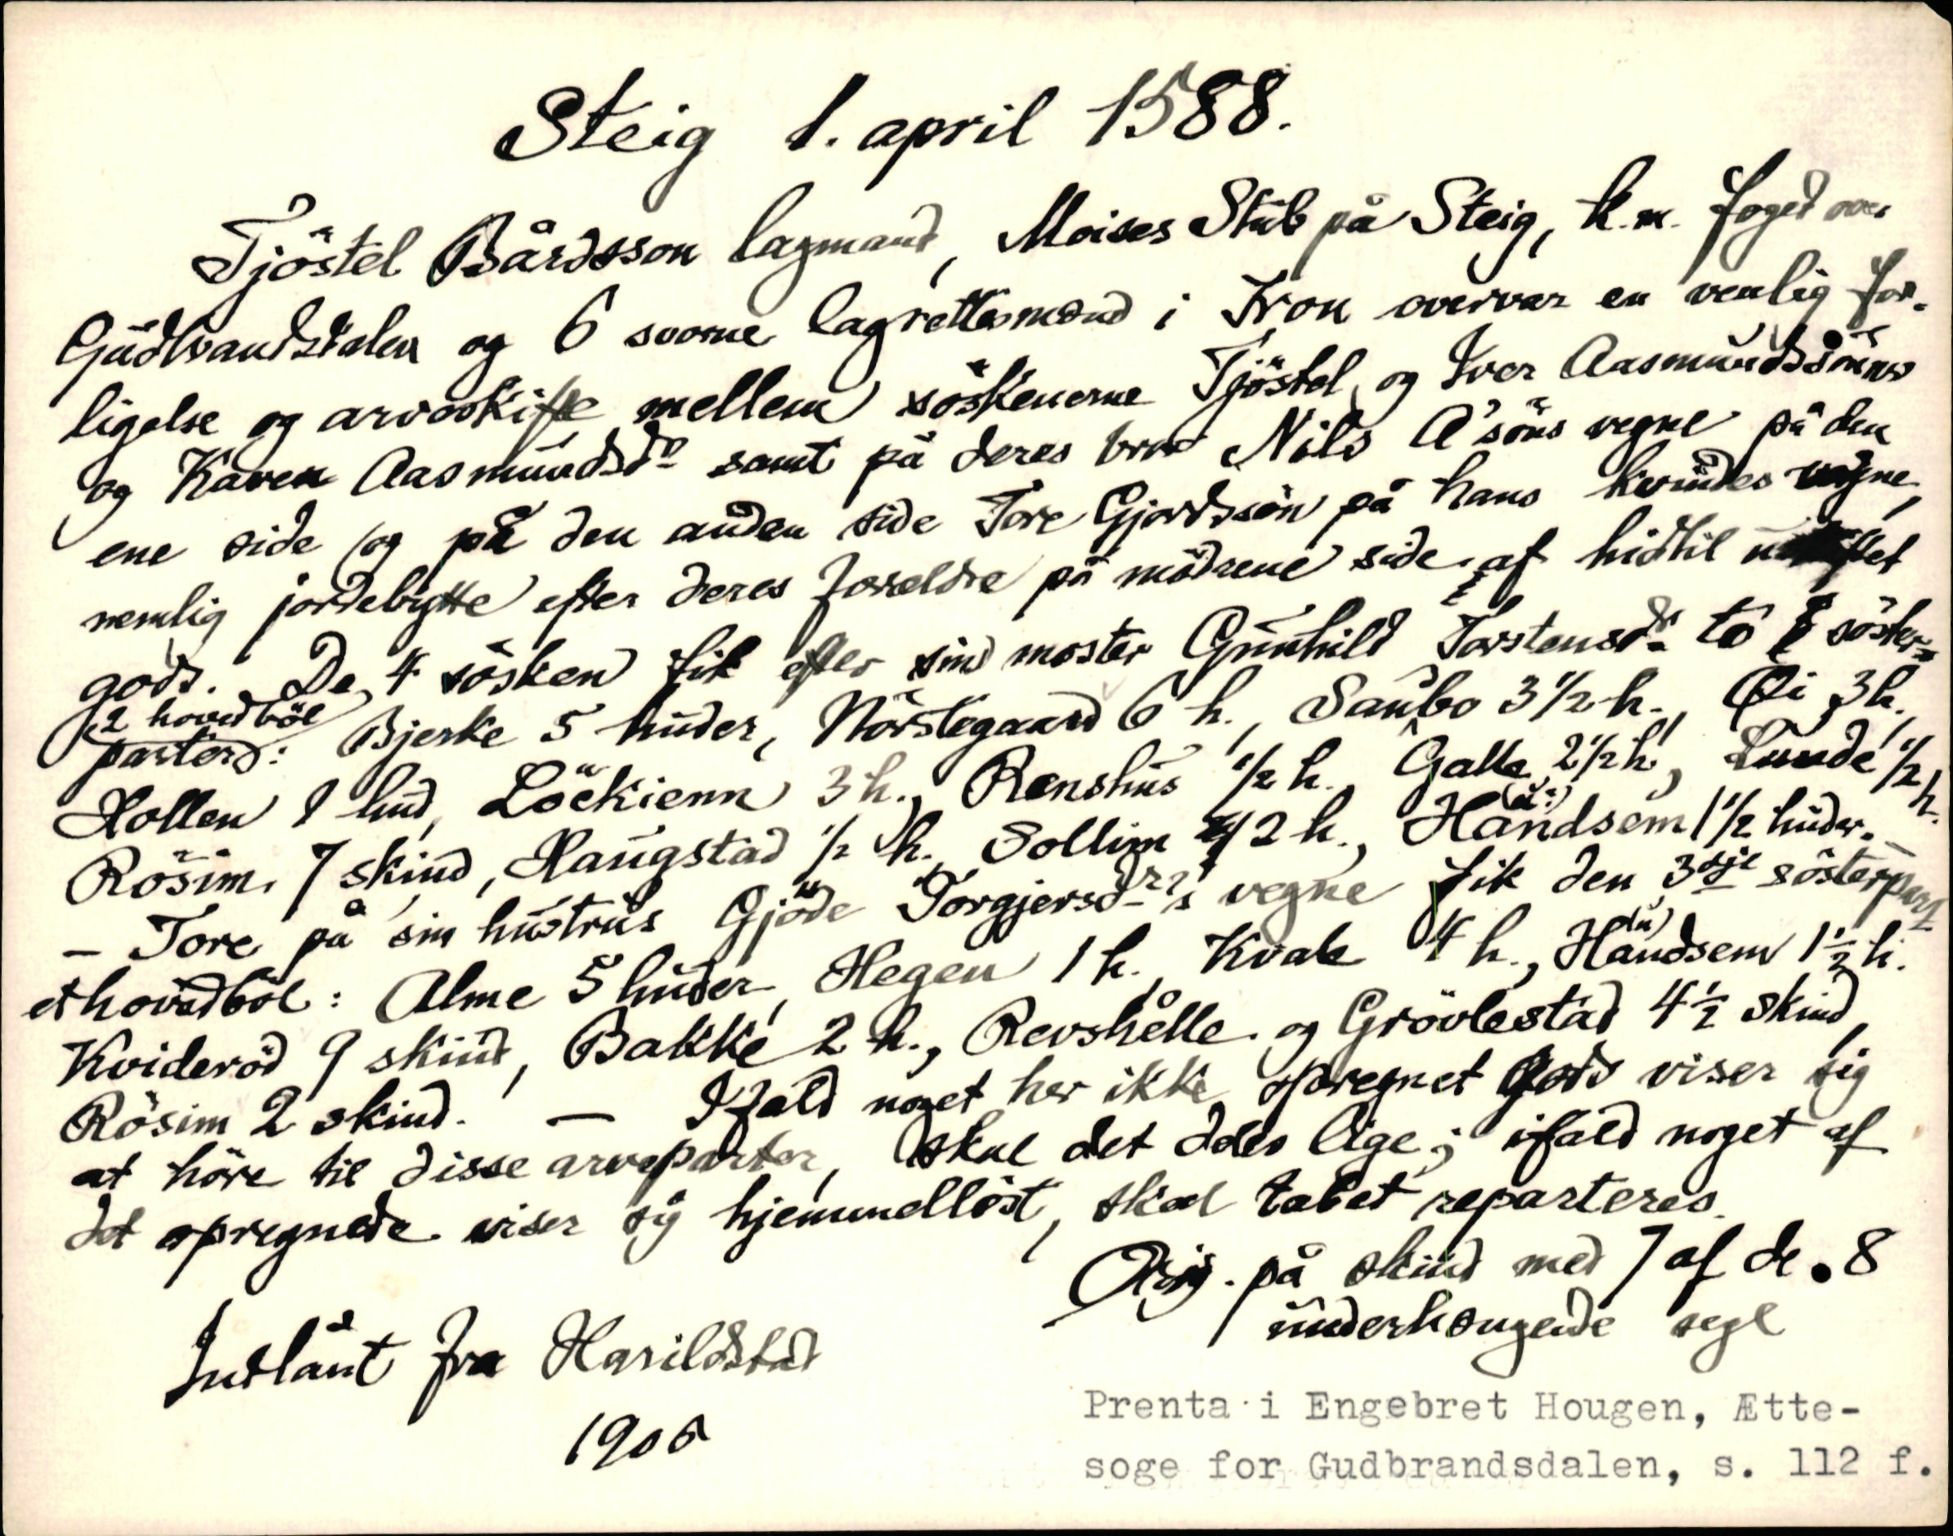 Steig 1. april 1588.
Tjöstel Bårdsson lagmand, Moises Stub på Steig, k.m. foged over
Gudbrandsdalen og 6 svorne lagrettesmænd i Fron overvar en venlig for-
ligelse og arveskifte mellem söskenerne Tjöstel og Iver Aasmundssönner
og Karen Aasmundsdr samt på deres bror Nils A'söns vegne på den
ene side og på den anden side Tore Gjordssön på hans kvindes vegne,
nemlig jordebytte efter deres forældre på mödrene side af hidtil uskiftet
gods. De 4 sösken fik efter sin moster Gunhild Torstensdr to söster-
parter: (2 hovedböl) Bjerke 5 huder, Nörstegaard 6 h., Saubo 3 1/2 h., Öi 3 h.,
Hollen 1 hud, Löckienn 3 h., Renshus 1/2 h., Galla 2 1/2 h, Lunde 1/2 h.
Rösim 7 skind, Haugstad 1/2 h., Sollim 2 h., Handsem (ɔ:) 1 1/2 huder.
– Tore på sin hustrus Gjöde Torgjersdr's vegne fik den 3dje sösterpart
et hovedböl: Alme 5 huder, Hegen 1 h., Kvale 4 h., Handsem 1 1/2 h.
Kvideröd 9 skind, Bakke 2 h., Revshålle og Grövlestad 4 1/2 skind,
Rösim 2 skind. — Ifald noget her ikke opregnet gods viser sig
at höre til disse arveparter, skal det deles lige; ifald noget af
det opregnede viser sig hjemmellöst, skal tabet reparteres.
Orig. på skind med 7 af de 8
underhængende segl
Indlånt fra Harildstad
1905
Prenta i Engebret Hougen, Ætte-
soge for Gudbrandsdalen, s. 112 f.